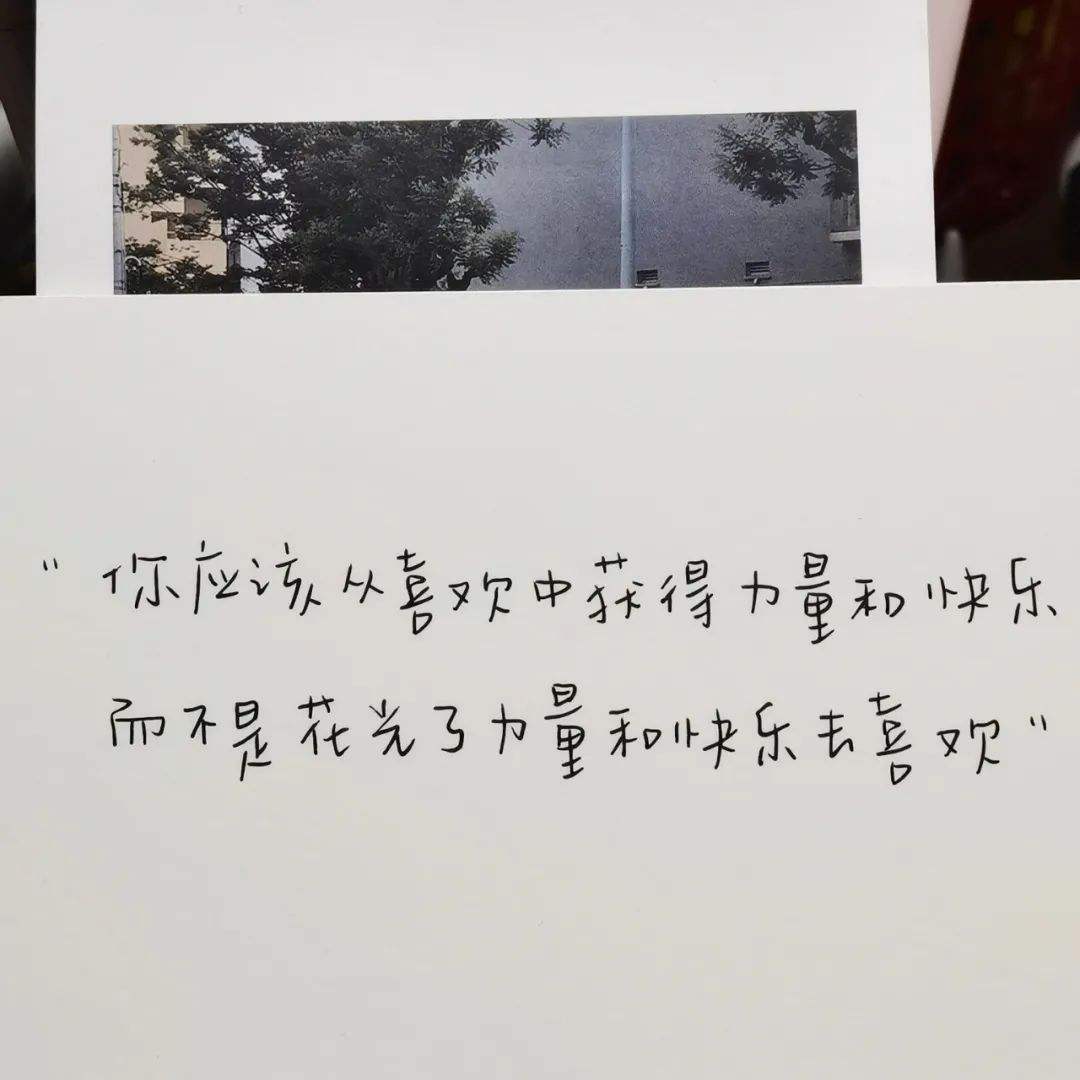 “你应该从喜欢中获得力量和快乐
而不是花光了力量和快乐去喜欢”